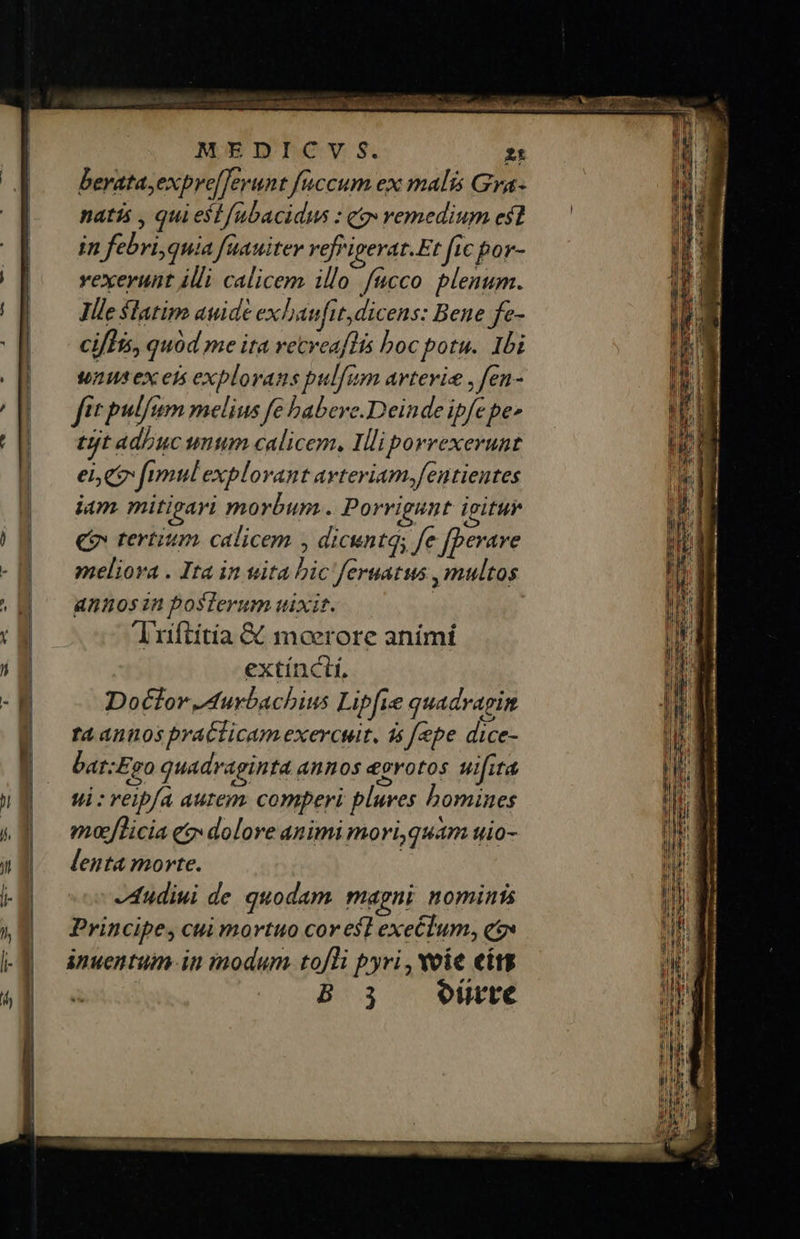 MEDICVS. 21
berata,expreſſerunt ſuccum ex malis Gra-
natis , qui est ſubacidus : & remedium est
in febri,quia ſuauiter refrigerat.Et ſic por-
rexerunt illi calicem illo ſucco plenum.
Ille statim auidè exhauſit,dicens: Bene fe-
cistis, quòd me ita recreastis hoc potu. Ibi
unus ex eis explorans pulſum arteriæ , ſen-
ſit pulſum melius ſe habere.Deinde ipſe pe-
tijt adhuc unum calicem, Illi porrexerunt
ei,& ſimul explorant arteriam,ſentientes
iam mitigari morbum . Porrigunt igitur
& tertium calicem , dicuntq; ſe ſperare
meliora . Ita in uita hic ſeruatus , multos
annos in posterum uixit.
Triſtitia & mœrore animi
extincti.
Doctor Aurbachius Lipſiæ quadragin
ta annos practicam exercuit. is ſæpe dice-
bat:Ego quadraginta annos ægrotos uiſita
ui : reipſa autem comperi plures homines
mœsticia & dolore animi mori,quàm uio-
lenta morte.
Audiui de quodam magni nominis
Principe, cui mortuo cor est exectum, &
inuentum in modum tosti pyri, wie ein
B 3 dürre